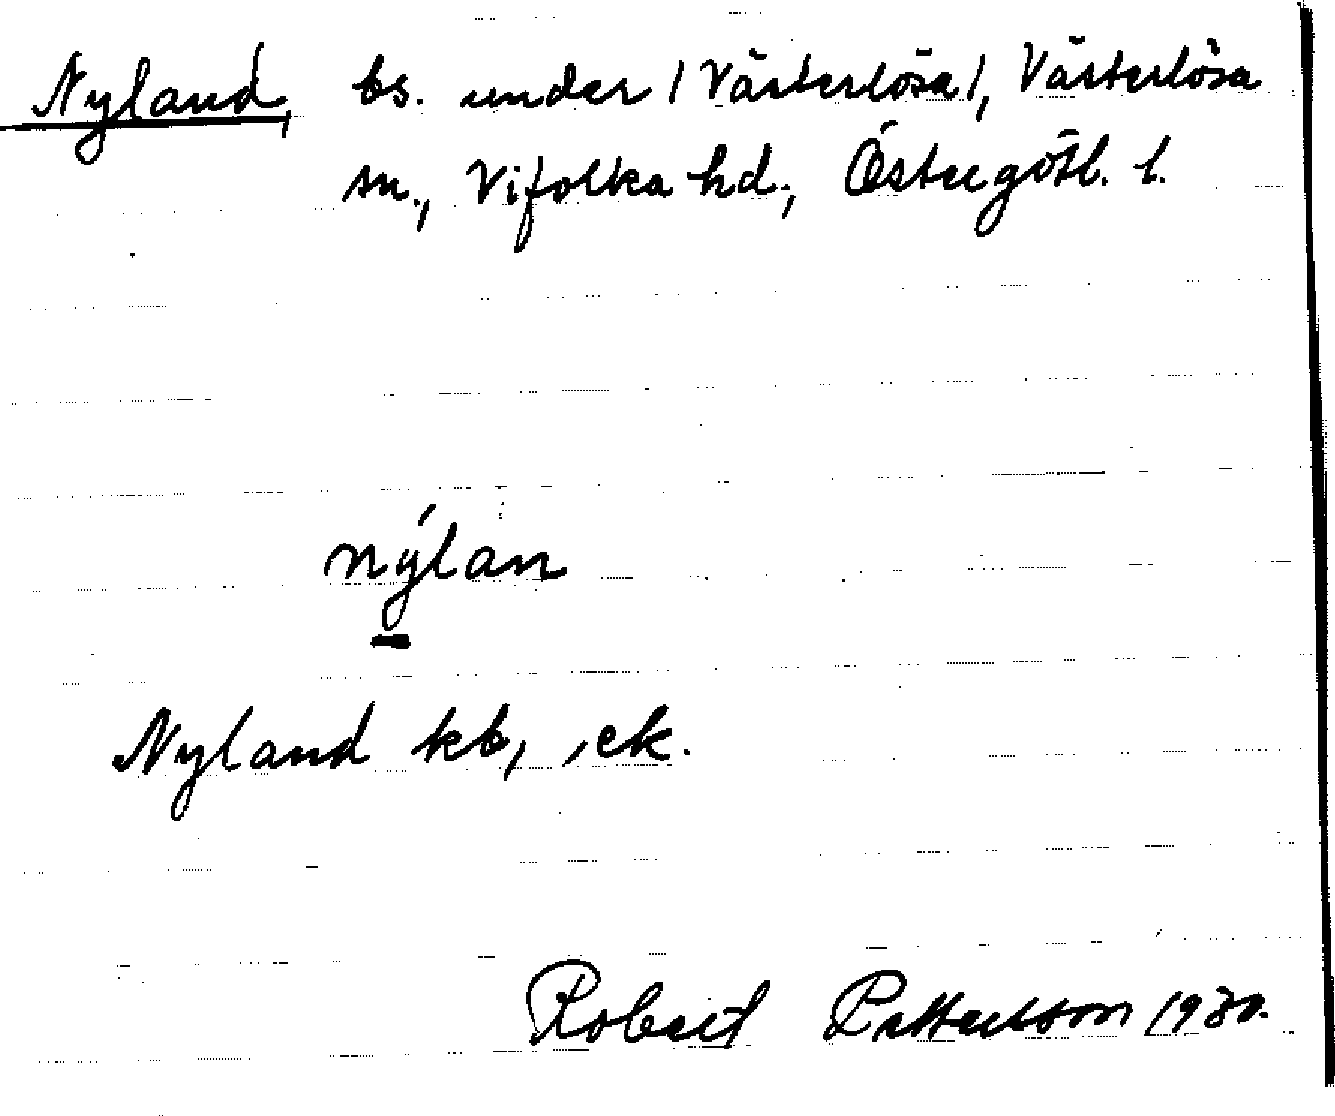 Nyland, bs. under /Västerlösa/, Västerlösa
sn., Vifolka hd., Östergötl. l.
nýlan
Nyland kb, ,ek.
Robert Pettersson 1930.